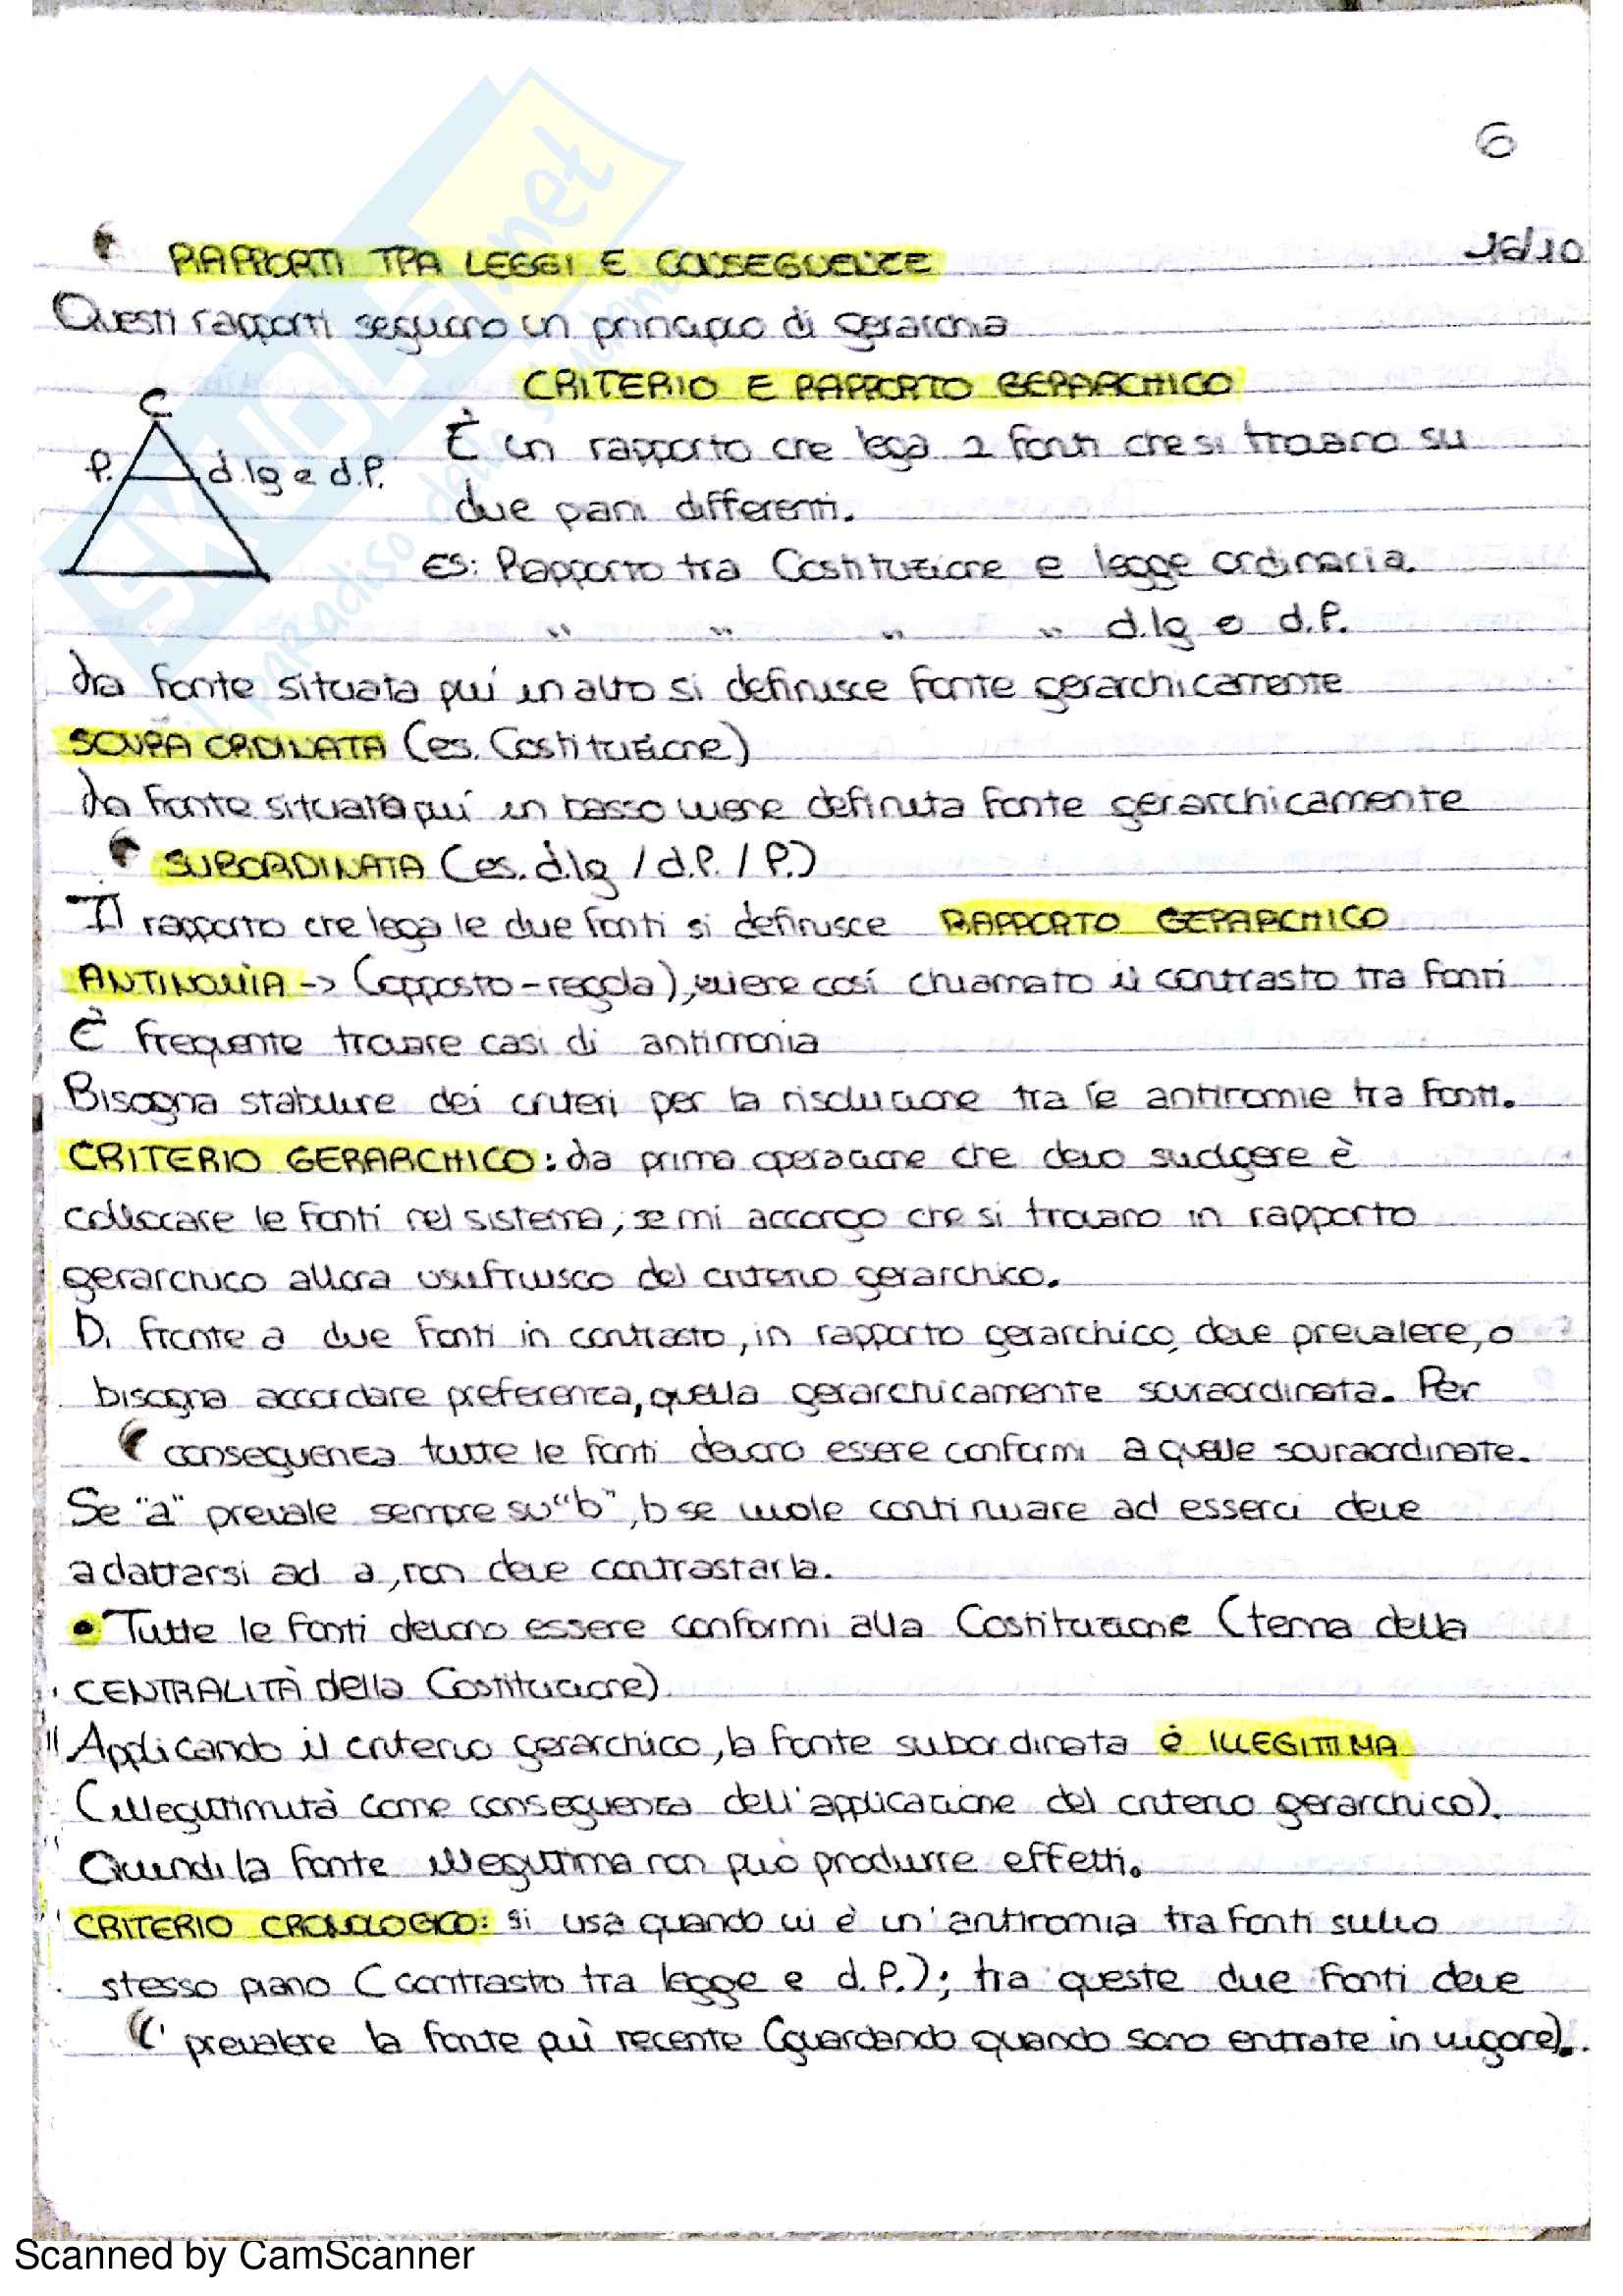 6
RAPPORTI TRA LEGGI E CONSEGUENZE 18/10
Questi rapporti seguono un principio di gerarchia
CRITERIO E RAPPORTO GERARCHICO
C
È un rapporto che lega 2 fonti che si trovano su
P. d.lg e d.P.
due piani differenti.
ES: Rapporto tra Costituzione e legge ordinaria.
" " " " d.lg e d.P.
La fonte situata piú in alto si definisce fonte gerarchicamente
SOVRA ORDINATA (es. Costituzione)
La fonte situata piú in basso viene definita fonte gerarchicamente
SUBORDINATA (es. d.lg / d.P. / P.)
Il rapporto che lega le due fonti si definisce RAPPORTO GERARCHICO
ANTINOMÌA -> (opposto - regola), viene cosí chiamato il contrasto tra fonti
È frequente trovare casi di antinomia
Bisogna stabilire dei criteri per la risoluzione tra le antinomie tra fonti.
CRITERIO GERARCHICO: La prima operazione che devo svolgere è
collocare le fonti nel sistema, se mi accorgo che si trovano in rapporto
gerarchico allora usufruisco del criterio gerarchico.
Di fronte a due fonti in contrasto, in rapporto gerarchico, deve prevalere, o
bisogna accordare preferenza, quella gerarchicamente sovraordinata. Per
conseguenza tutte le fonti devono essere conformi a quelle sovraordinate.
Se "a" prevale sempre su "b", b se vuole continuare ad esserci deve
adattarsi ad a, non deve contrastarla.
• Tutte le fonti devono essere conformi alla Costituzione (tema della
CENTRALITÀ della Costituzione)
Applicando il criterio gerarchico, la fonte subordinata è ILLEGITTIMA
(illegittimità come conseguenza dell'applicazione del criterio gerarchico).
Quindi la fonte illegittima non può produrre effetti.
CRITERIO CRONOLOGICO: si usa quando vi è un'antinomia tra fonti sullo
stesso piano (contrasto tra legge e d.P.); tra queste due fonti deve
prevalere la fonte più recente (guardando quando sono entrate in vigore).
SKUOLA.net
il paradiso dello studente
Scanned by CamScanner